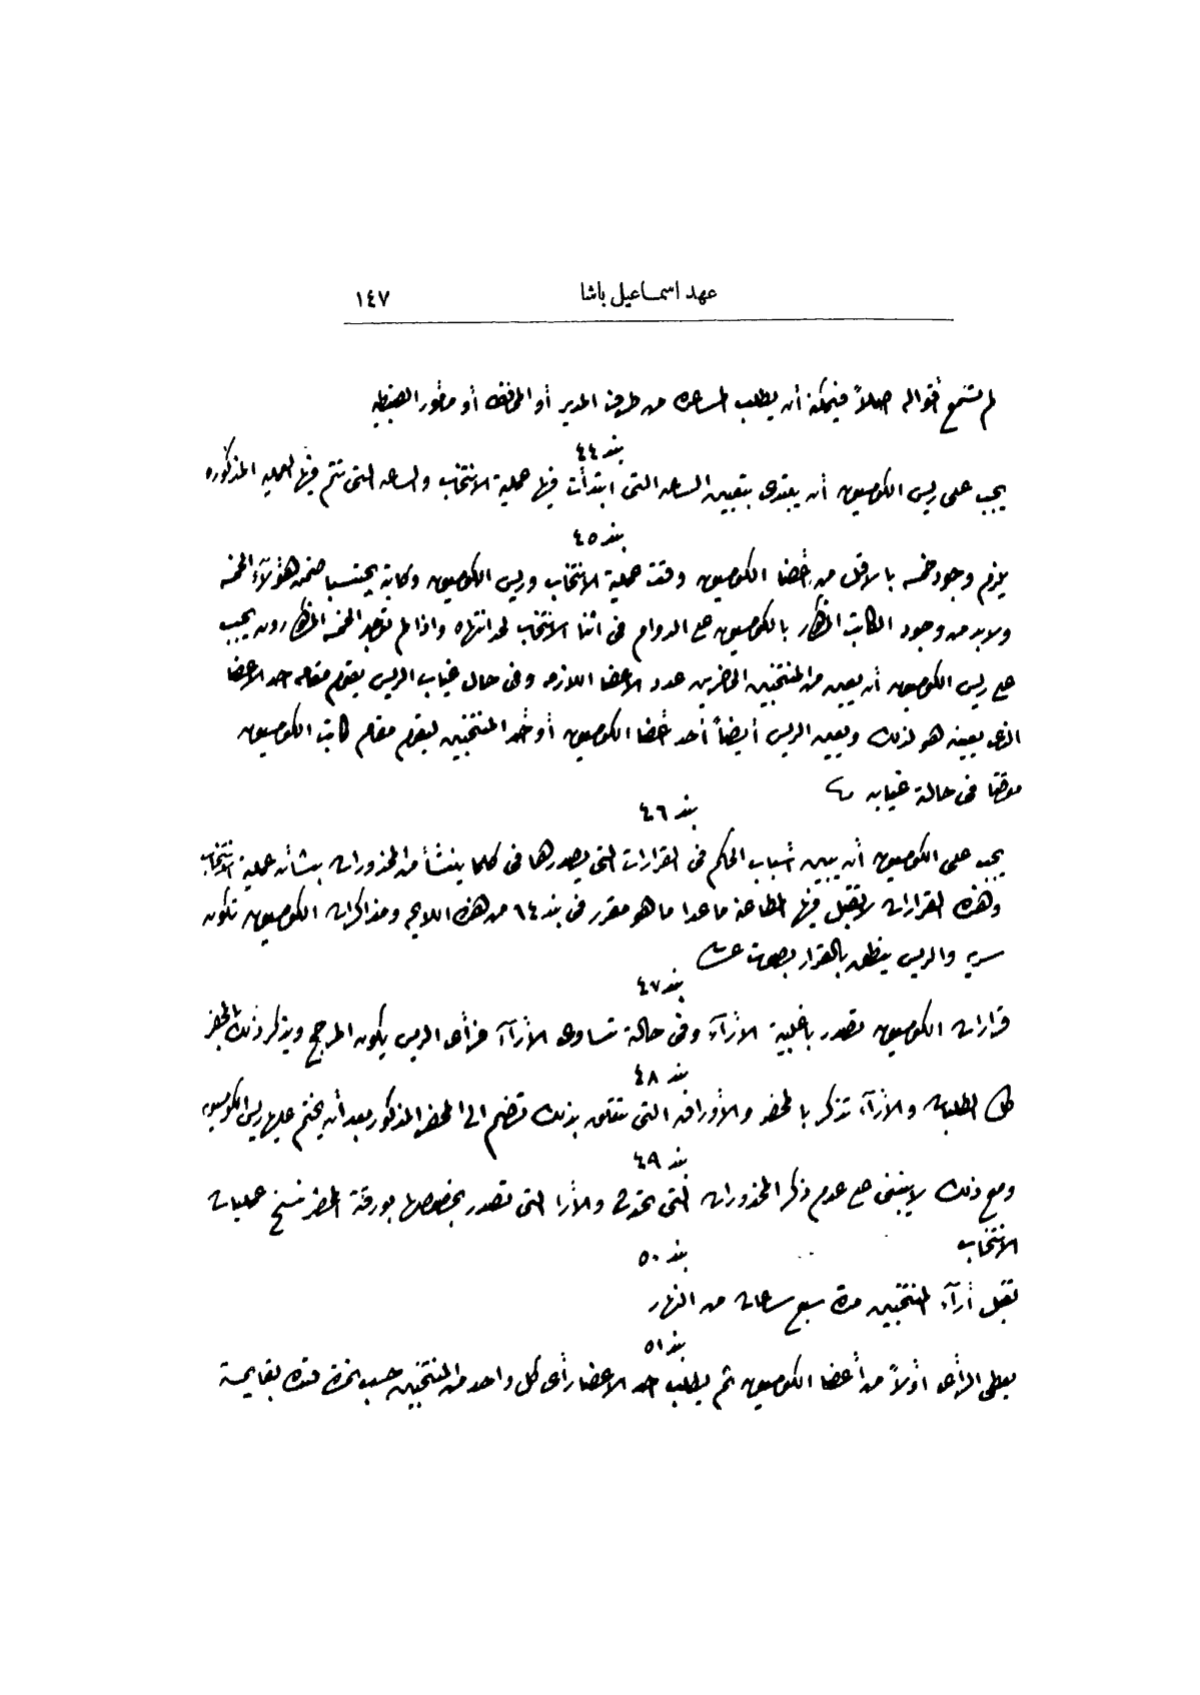 عهد اسماعيل باشا ١٤٧
لم تسمع أقواله اصلاً فيمكنه أن يطلب المساعده من طرف المدير أو المحافظه أو مأمور الضبطيه
بند ٤٤
يجب على ريس الكومسيون أن يبتدى بتعيين الساعه التى ابتدأت فيها عملية الانتخاب والساعه التى تتم فيها العمليه المذكوره
بند ٤٥
يلزم وجود خمسه بالاقل من أعضا الكومسيون وقت عملية الانتخاب وريس الكومسيون وكاتبه يحتسبا ضمن هؤلآء الخمسه
ولابد من وجود الكاتب المذكور بالكومسيون على الدوام فى اثنا الانتخاب لحد انتهاه واذا لم توجد الخمسه المذكورون يجب
على ريس الكومسيون أن يعين من المنتخبين الحاضرين عدد الاعضا اللازمه وفى حال غياب الريس يقوم مقامه احد الاعضا
الذى يعينه هو لذلك ويعين الريس أيضاً أحد أعضا الكومسيون أو أحد المنتخبين ليقوم مقام كاتب الكومسيون
موقتا فى حالة غيابه
بند ٤٦
يجب على الكومسيون أن يبين أسباب الحكم فى القرارات التى يصدرها فى كلما ينشأ من المحذورات بشأن عملية الانتخاب
وهذه القرارات لا تقبل فيها المطاعنه ماعدا ما هو مقرر فى بند ٦٤ من هذه اللايحه ومذاكرات الكومسيون تكون
سريه والريس ينطق بالقرار بصوت عال
بند ٤٧
قرارات الكومسيون تصدر باغلبية الأرآء وفى حالة تساوى الأرآء فرأى الريس يكون المرجح ويذكر ذلك بالمحضر
بند ٤٨
كل الطلبات والأرآء تذكر بالمحضر والأوراق التى تتعلق بذلك تضم الى المحضر المذكور بعد أن يختم عليها ريس الكومسيون
بند ٤٩
ومع ذلك لا يبتنى على عدم ذكر المحذورات التى تحدث والأرا التى تصدر بخصوصها بورقة المحضر فسخ عمليات
الانتخاب
بند ٥٠
تقبل أرآء المنتخبين مدة سبع ساعات من النهار
بند ٥١
يعطى الرأى اوّلاً من أعضا الكومسيون ثم يطلب احد الاعضا رأى كل واحد من المنتخبين حسب نمرة قيده بقايمة